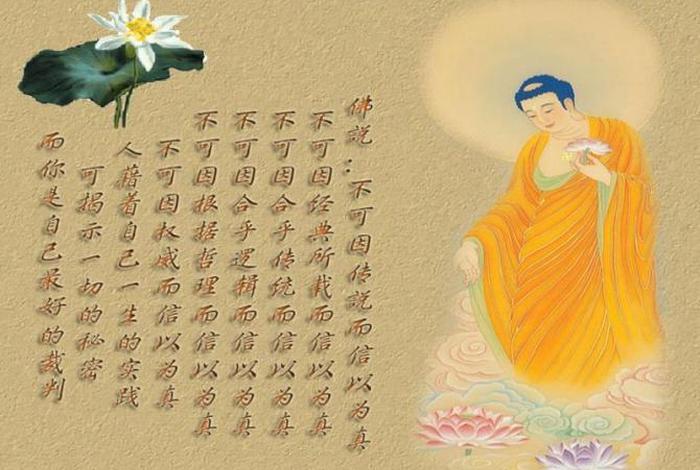 佛説：不可因传説而信以为真
不可因经典所载而信以为真
不可因合乎传统而信以为真
不可因合乎逻辑而信以为真
不可因根据哲理而信以为真
不可因权威而信以为真
人藉着自己一生的实践
可揭示一切的秘密
而你是自己最好的裁判